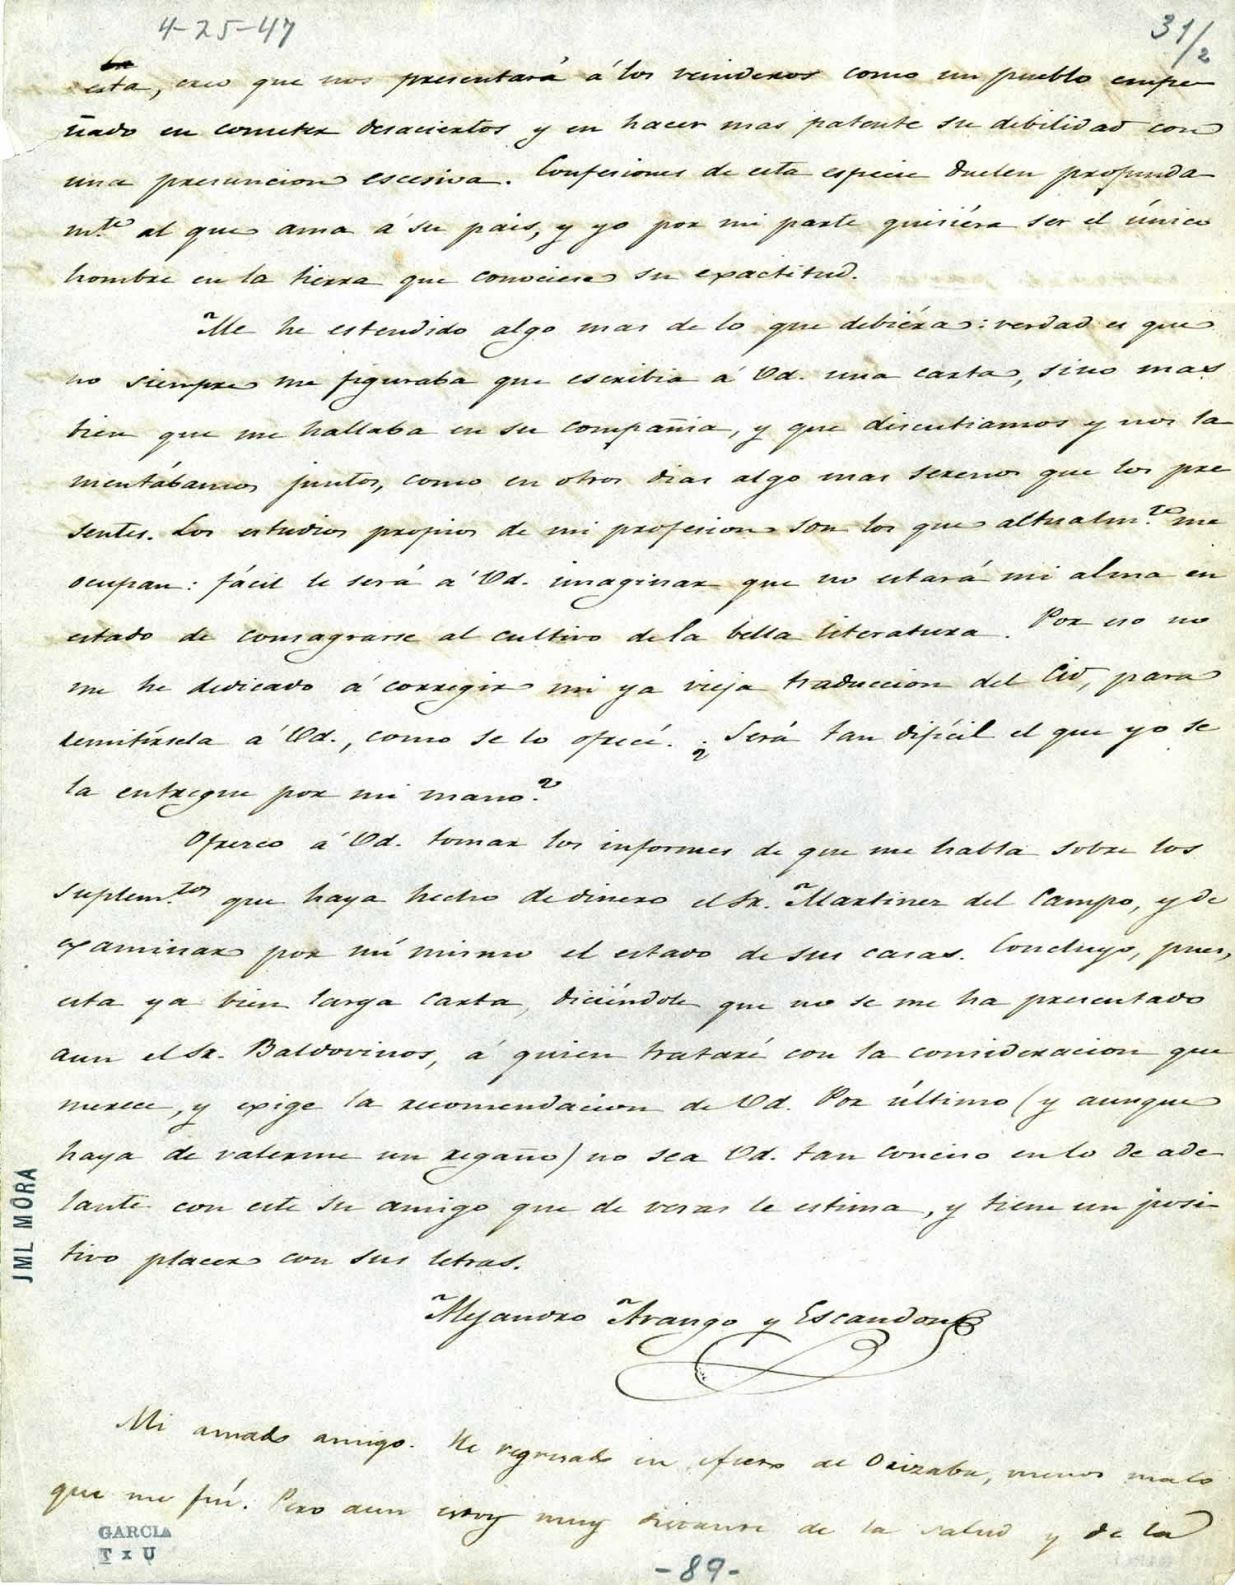 4-25-47
31/2
esta, creo que nos presentará á los venideros como un pueblo empe
ñado en cometer desaciertos y en hacer mas patente su debilidad con
una presuncion escesiva. Confesiones de esta especie duelen profunda
m.te al que ama á su pais, y yo por mi parte quisiéra ser el único
hombre en la tierra que conociese su exactitud.
Me he estendido algo mas de lo que debiéra: verdad es que
no siempre me figuraba que escribia á Vd. una carta, sino mas
bien que me hallaba en su compañia, y que discutiamos y nos la
mentábamos juntos, como en otros dias algo mas serenos que los pre
sentes. Los estudios propios de mi profesion son los que actualm.te me
ocupan: fácil le será á Vd. imaginar que no estará mi alma en
estado de consagrarse al cultivo de la bella literatura. Por eso no
me he dedicado á corregir mi ya vieja traduccion del Cid, para
remitírsela á Vd., como se lo ofrecí. ¿Será tan difícil el que yo se
la entregue por mi mano?
Ofrezco á Vd. tomar los informes de que me habla sobre los
suplem.tos que haya hecho de dinero el Sr. Martinez del Campo, y de
examinar por mí mismo el estado de sus casas. Concluyo, pues,
esta ya bien larga carta, diciéndole que no se me ha presentado
aun el Sr. Baldovinos, á quien trataré con la consideracion que
merece, y exige la recomendacion de Vd. Por último (y aunque
haya de valerme un regaño) no sea Vd. tan conciso en lo de ade
lante con este su amigo que de veras le estima, y tiene un posi
tivo placer con sus letras.
Alejandro Arango y Escandon
Mi amado amigo. He regresado en efecto de Orizaba, menos malo
que me fuí. Pero aun estoy muy distante de la salud y de la
JML MORA
GARCIA
T x U
-89-